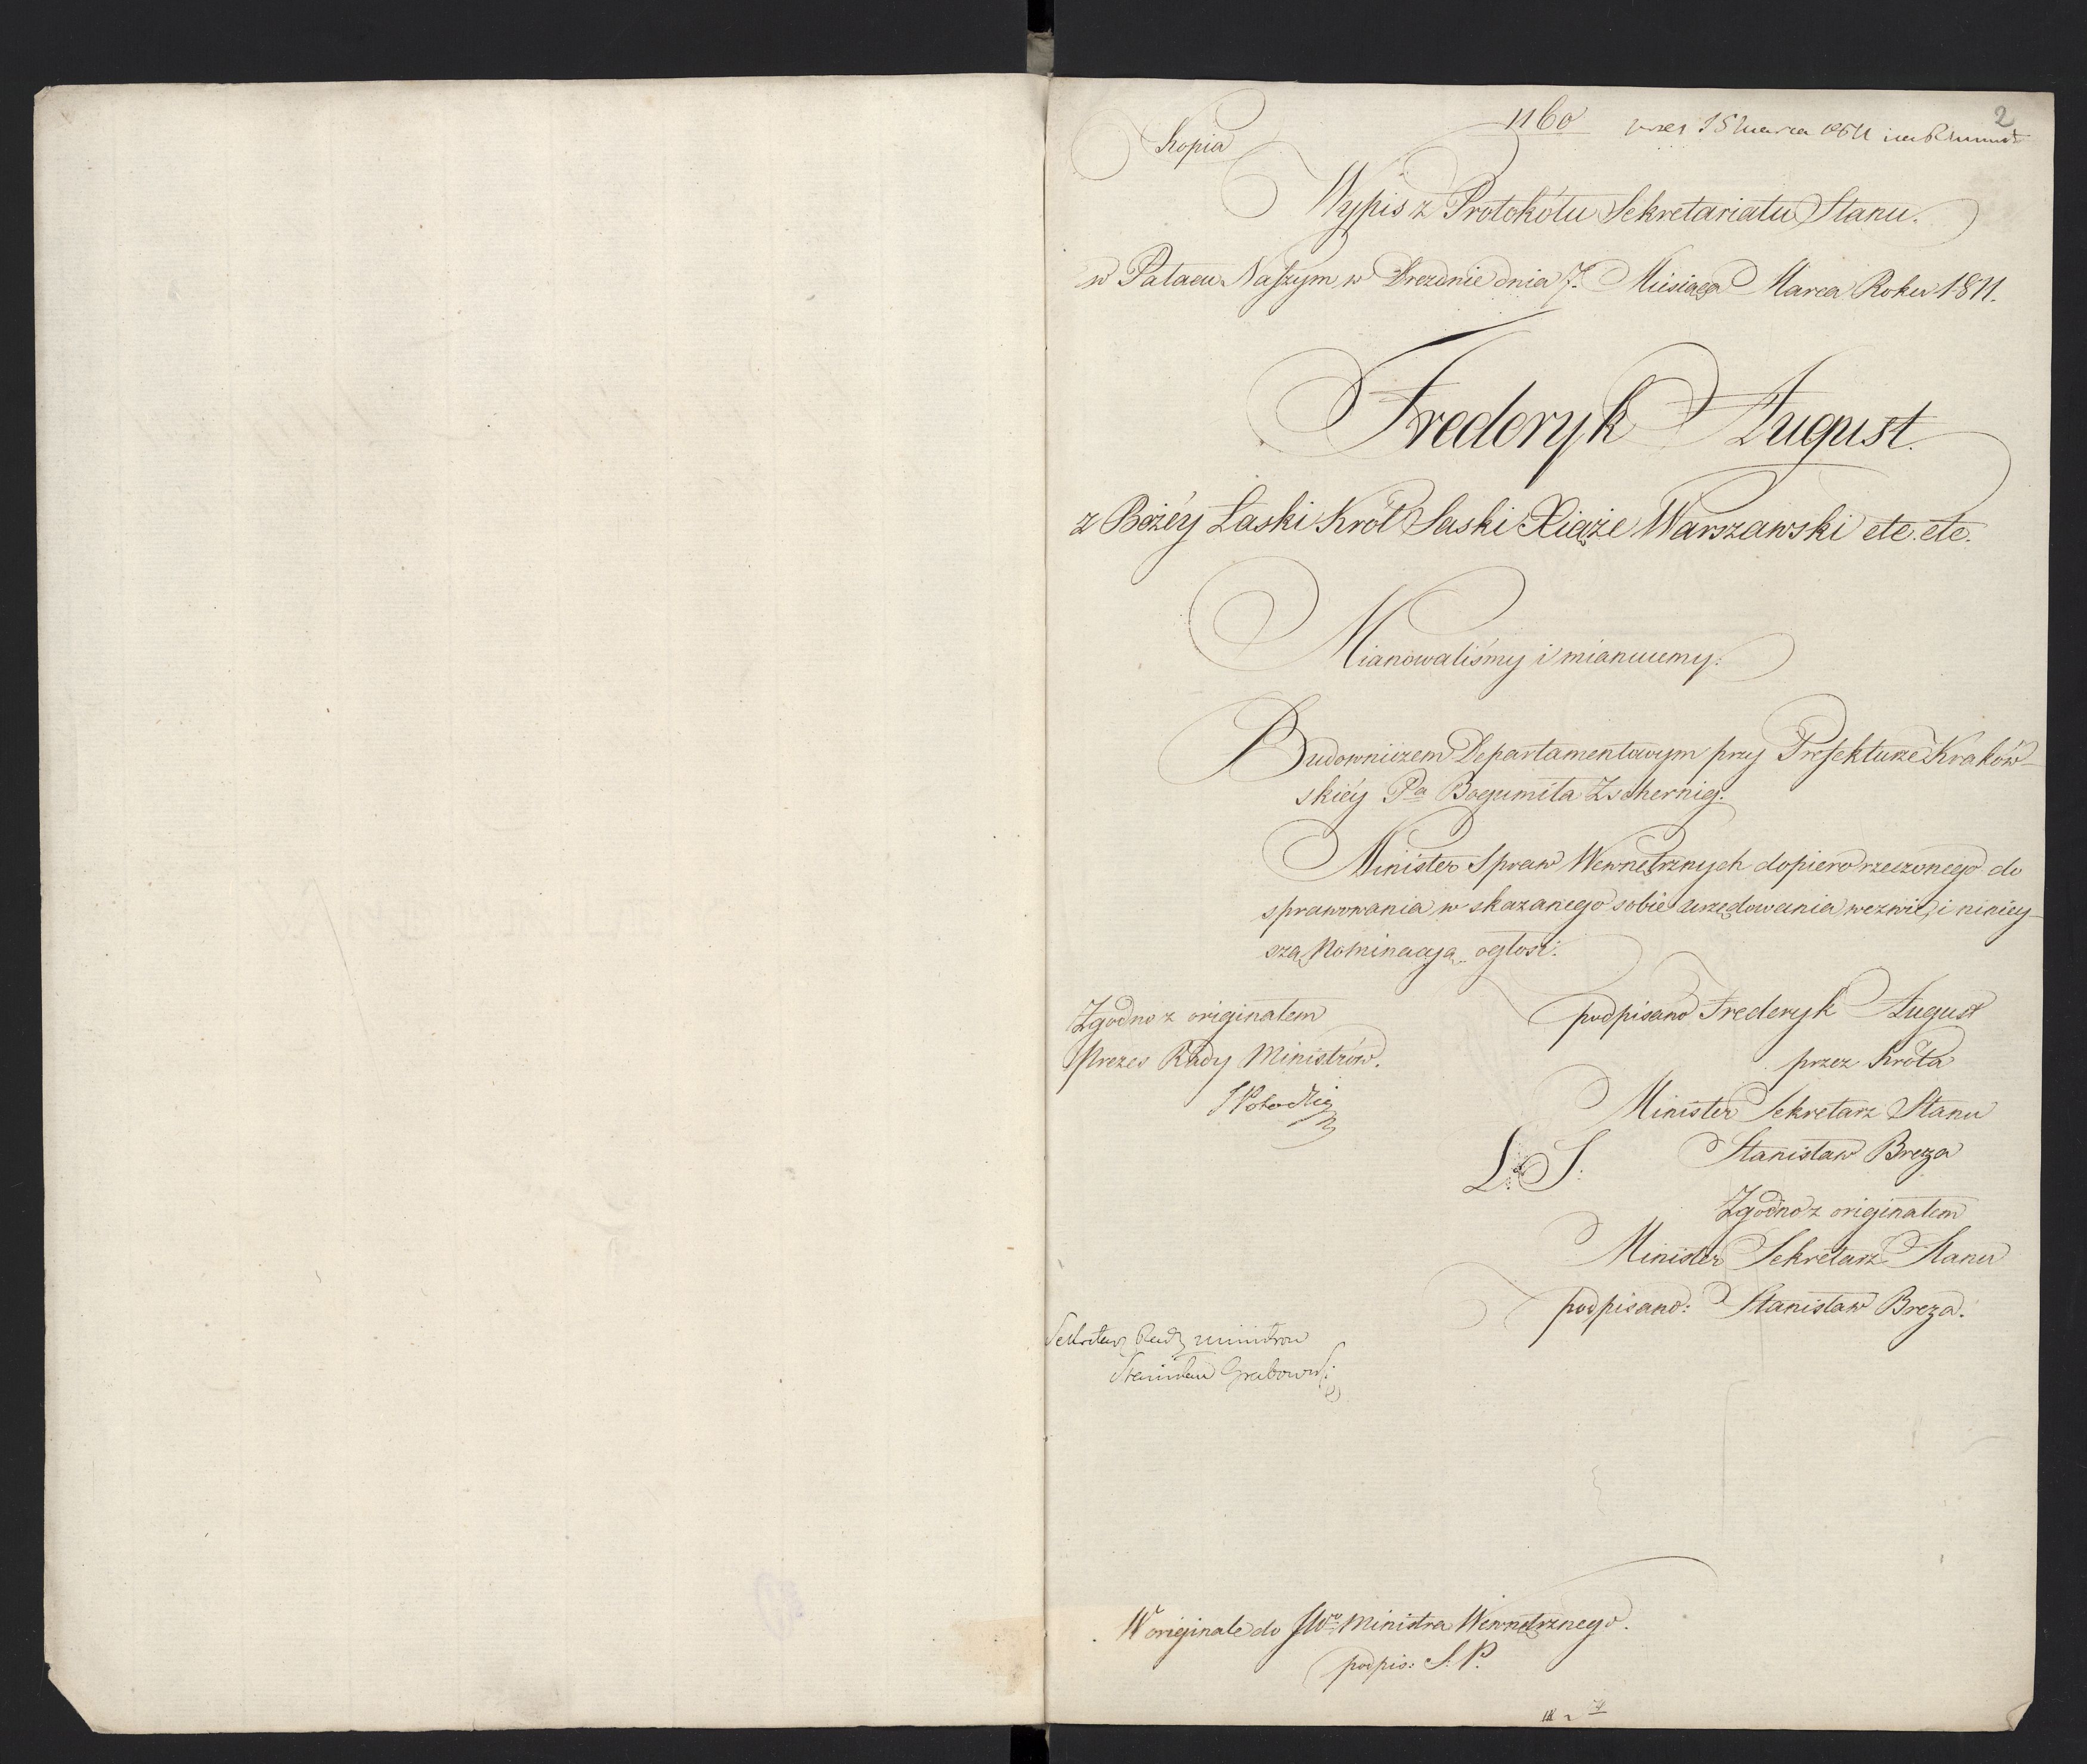 2
1160
Kopia
Wypis z Protokółu Sekretariatu Stanu.
w Pałacu Naszym w Dreznie dnia 7. Miesiąca Marca Roku 1811.
Frederyk August.
z Bożéy Łaski Król Saski Xiąże Warszawski etc. etc.
Mianowaliśmy i mianuiemy:
Budowniczem Departamentowym przy Prefekturze Kraków-
skiéy Pa Bogumiła Zschernig.
Minister Spraw Wewnętrznych dopiero rzeczonego do
sprawowania wskazanego sobie urzędowania wezwie, i niniey-
szą Nominacyą ogłosi.
Zgodno z originałem
Prezes Rady Ministrów.
S Potocki
podpisano Frederyk August
przez Króla
Minister Sekretarz Stanu
L. S. Stanisław Breza
Zgodno z originałem
Minister Sekretarz Stanu
podpisano: Stanisław Breza.
Sekretarz Rady Ministrow
Stanisław Grabowski
W originale do JWo Ministra Wewnętrznego.
podpis: S. P.